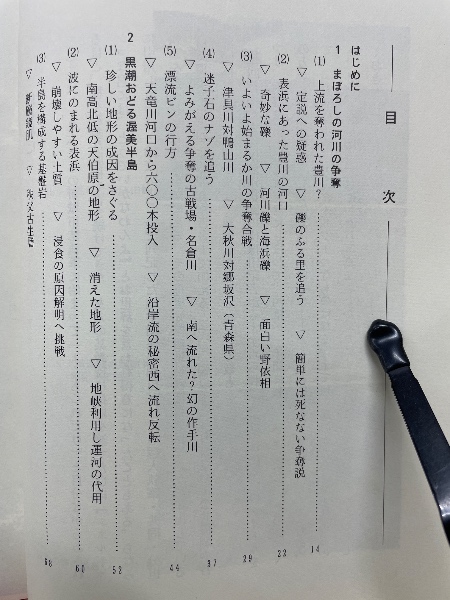 目 次
はじめに
1 まぼろしの河川の争奪
(1) 上流を奪われた豊川? 14
▽ 定説への疑惑 ▽ 礫のふる里を追う ▽ 簡単には死なない争奪説
(2) 表浜にあった豊川の河口 22
▽ 奇妙な礫 ▽ 河川礫と海浜礫 ▽ 面白い野依相
(3) いよいよ始まるか川の争奪合戦 29
▽ 津具川対鴨山川 ▽ 大秋川対郷坂沢(青森県)
(4) 迷子石のナゾを追う 37
▽ よみがえる争奪の古戦場・名倉川 ▽ 南へ流れた?幻の作手川
(5) 漂流ビンの行方 44
▽ 天竜川河口から六〇〇本投入 ▽ 沿岸流の秘密西へ流れ反転
2 黒潮おどる渥美半島
(1) 珍しい地形の成因をさぐる 52
▽ 南高北低の天伯原の地形 ▽ 消えた地形 ▽ 地峡利用し運河の代用
(2) 波にのまれる表浜 60
▽ 崩壊しやすい土質 ▽ 浸食の原因解明へ挑戦
(3) 半島を構成する基盤岩 68